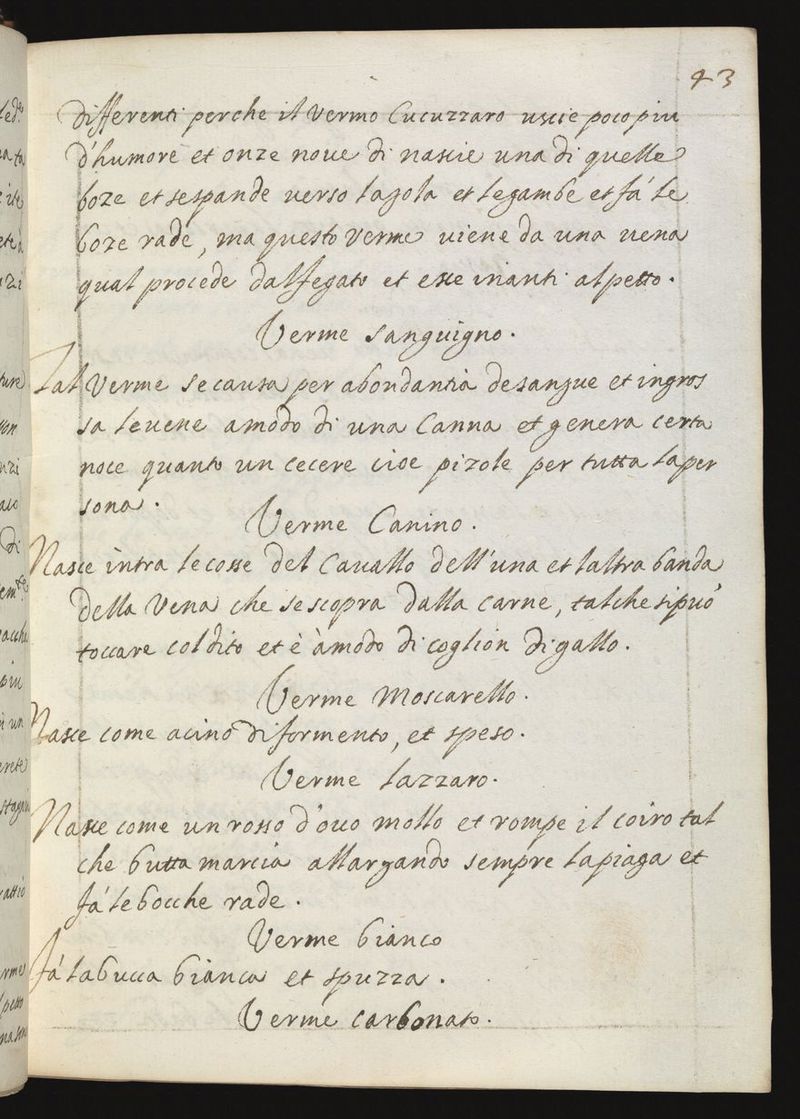 43
differenti perche il vermo Cucuzzaro uscie poco piu
d'humore et onze noue di nascie una di quelle
boze et sespande verso lagola et legambe et fá le
boze rade, ma questo verme uiene da una uena
qual procede dal fegato et esce inanti al petto.
Verme Sanguigno.
Tal Verme se causa per abondantia desangue et ingros
sa leuene amodo di una Canna et genera certa
noce quanto un cecere cioe pizole per tutta laper
sona.
Verme Canino.
Nasce intra lecosse del Cauallo dell'una et laltra banda
della Vena che sescopra dalla carne, talche sipuó
toccare coldito et è àmodo di coglion di gallo.
Verme Moscarello.
Nasce come acino di formento, et speso.
Verme lazzaro.
Nasce come un rosso d'ouo mollo et rompe il coiro tal
che butta marcia allargando sempre lapiaga et
fá lebocche rade.
Verme bianco
Fá labucca bianca et spuzza.
Verme carbonato.